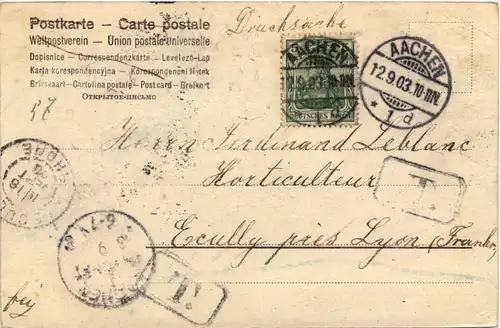 Postkarte – Carte postale
Drucksache
Weltpostverein – Union postale universelle
Dopisnice – Correspondenzkarte – Levelező-Lap
Karta korespondencyjna – Korespondenčni listek
Brefkaart – Cartolina postale – Post card – Brefkort
ОТКРЫТОЕ-ПИСЬМО
57
AACHEN
12.9.03.10-11N.
AACHEN
12.9.03.10-11N.
* 1 d
Herrn Ferdinand Leblanc
Horticulteur
T.
Ecully près Lyon (Frankr.
T.
frey